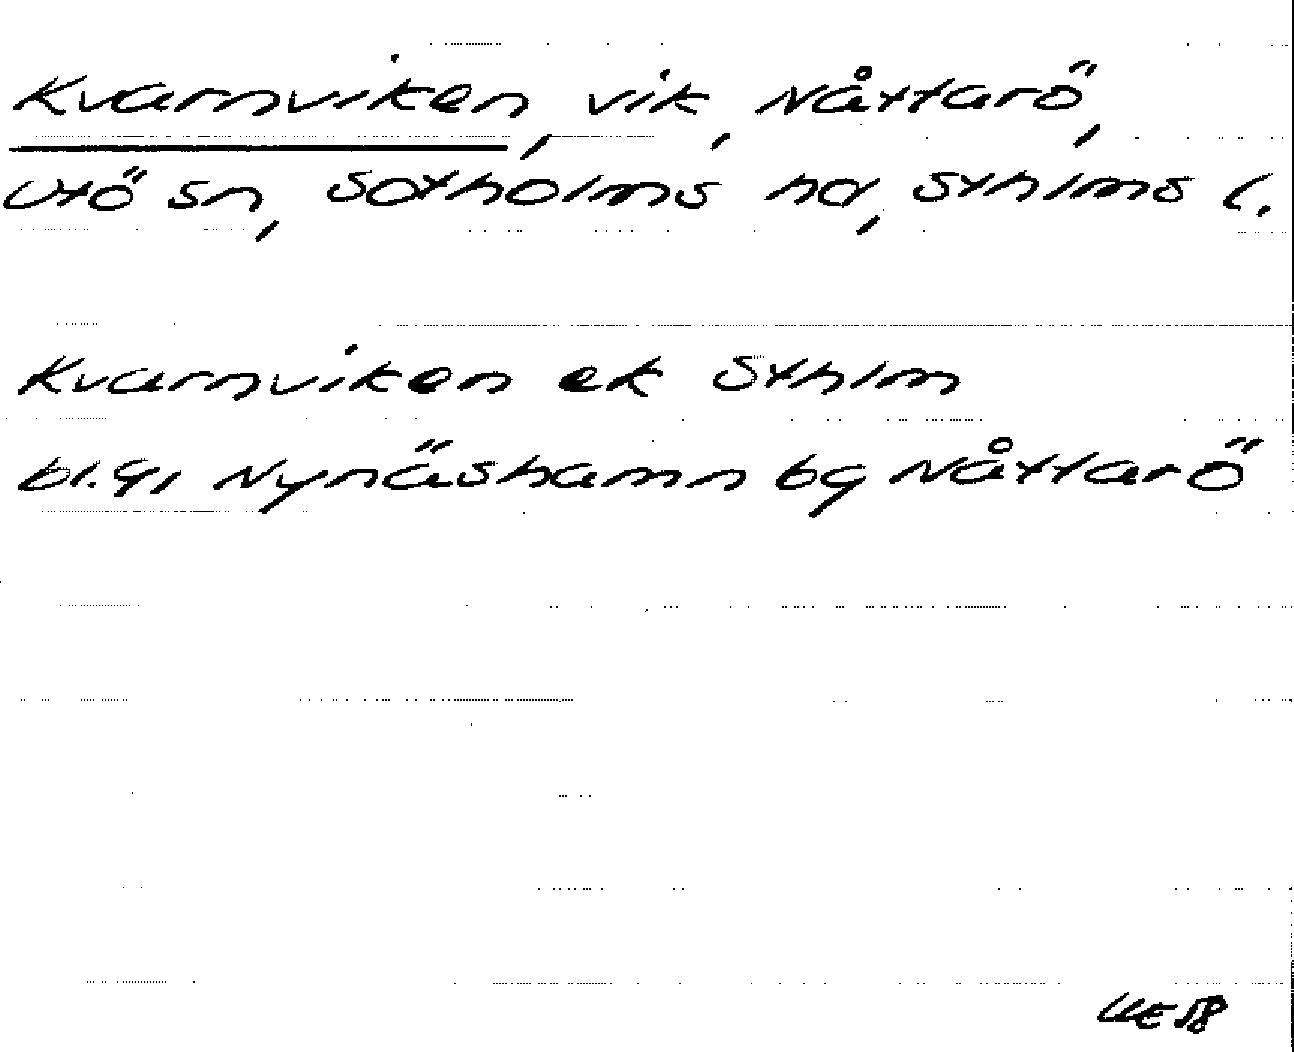 Kvarnviken, vik, Nåttarö,
Utö sn, Sotholms hd, Sthlms l.
Kvarnviken ek Sthlm
bl. 91 Nynäshamn bg Nåttarö